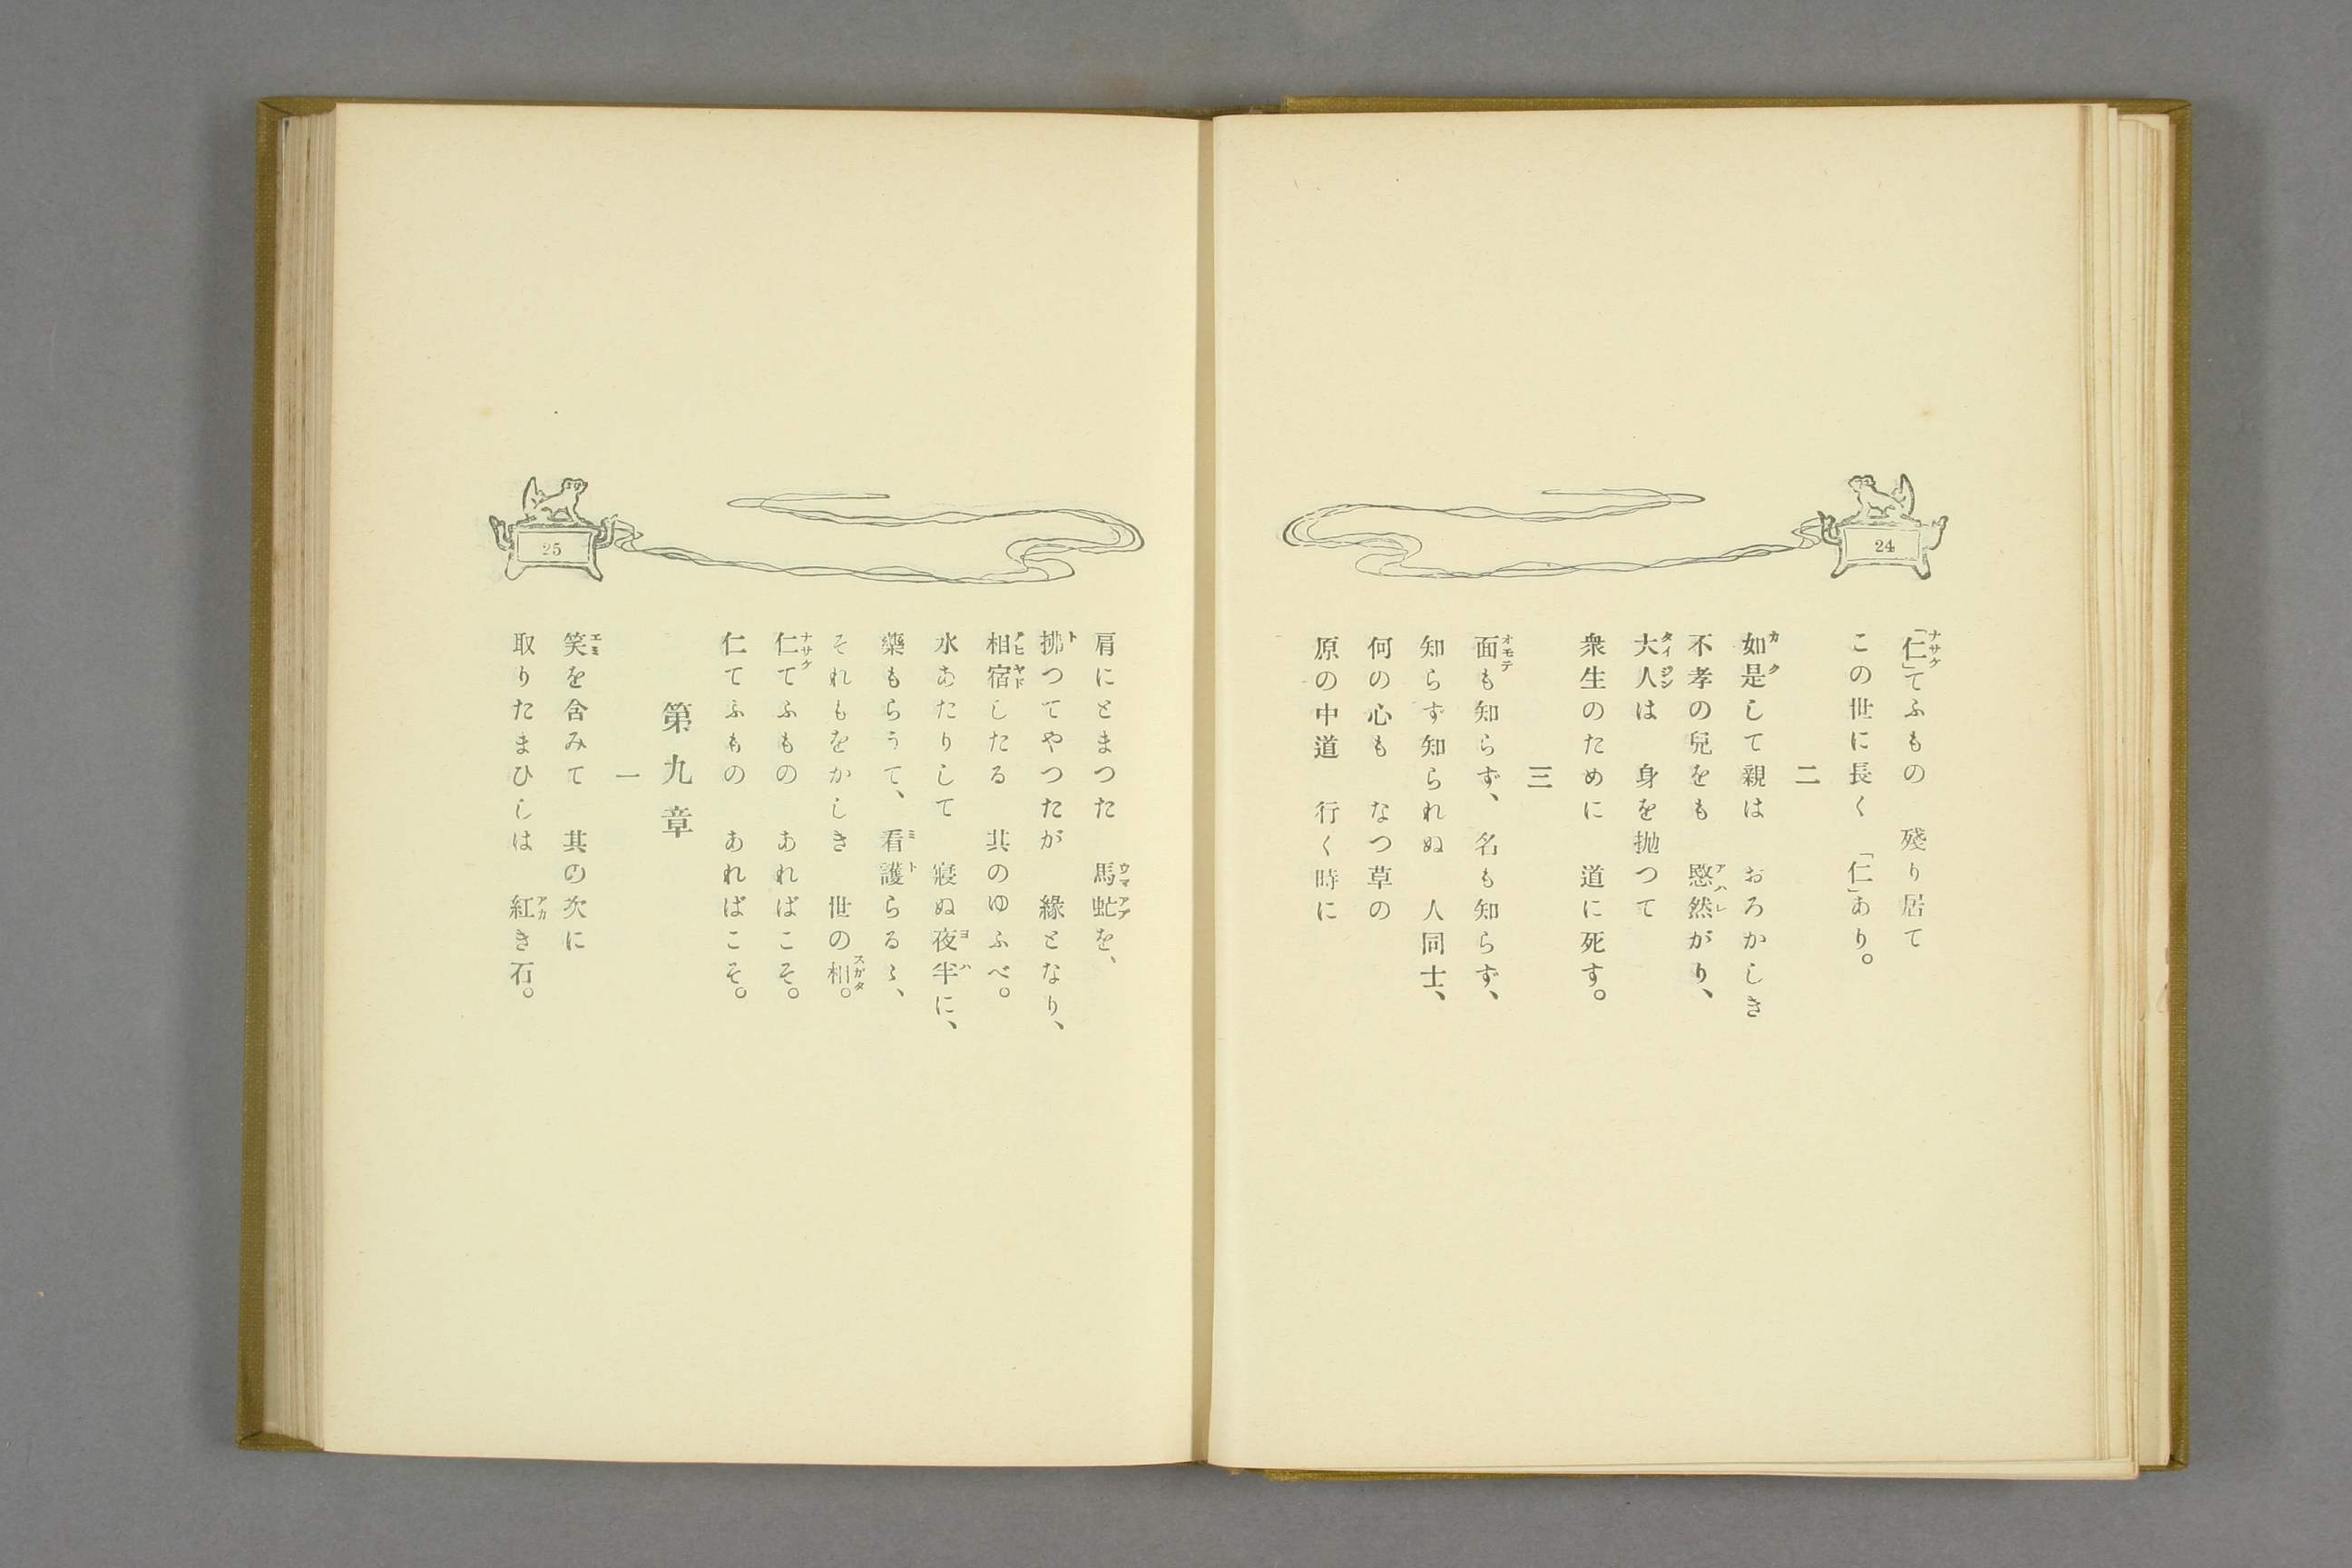 24
「仁」てふもの　殘り居て
この世に長く　「仁」あり。
二
如是して親は　おろかしき
不孝の兒をも　愍然がり、
大人は　身を抛つて
衆生のために　道に死す。
三
面も知らず、名も知らず、
知らず知られぬ　人同士、
何の心も　なつ草の
原の中道　行く時に
25
肩にとまつた　馬虻を、
拂つてやつたが　緣となり、
相宿したる　其のゆふべ。
水あたりして　寢ぬ夜半に、
藥もらうて、看護らるゝ、
それもをかしき　世の相。
仁てふもの　あればこそ。
仁てふもの　あればこそ。
第九章
一
笑を含みて　其の次に
取りたまひしは　紅き石。